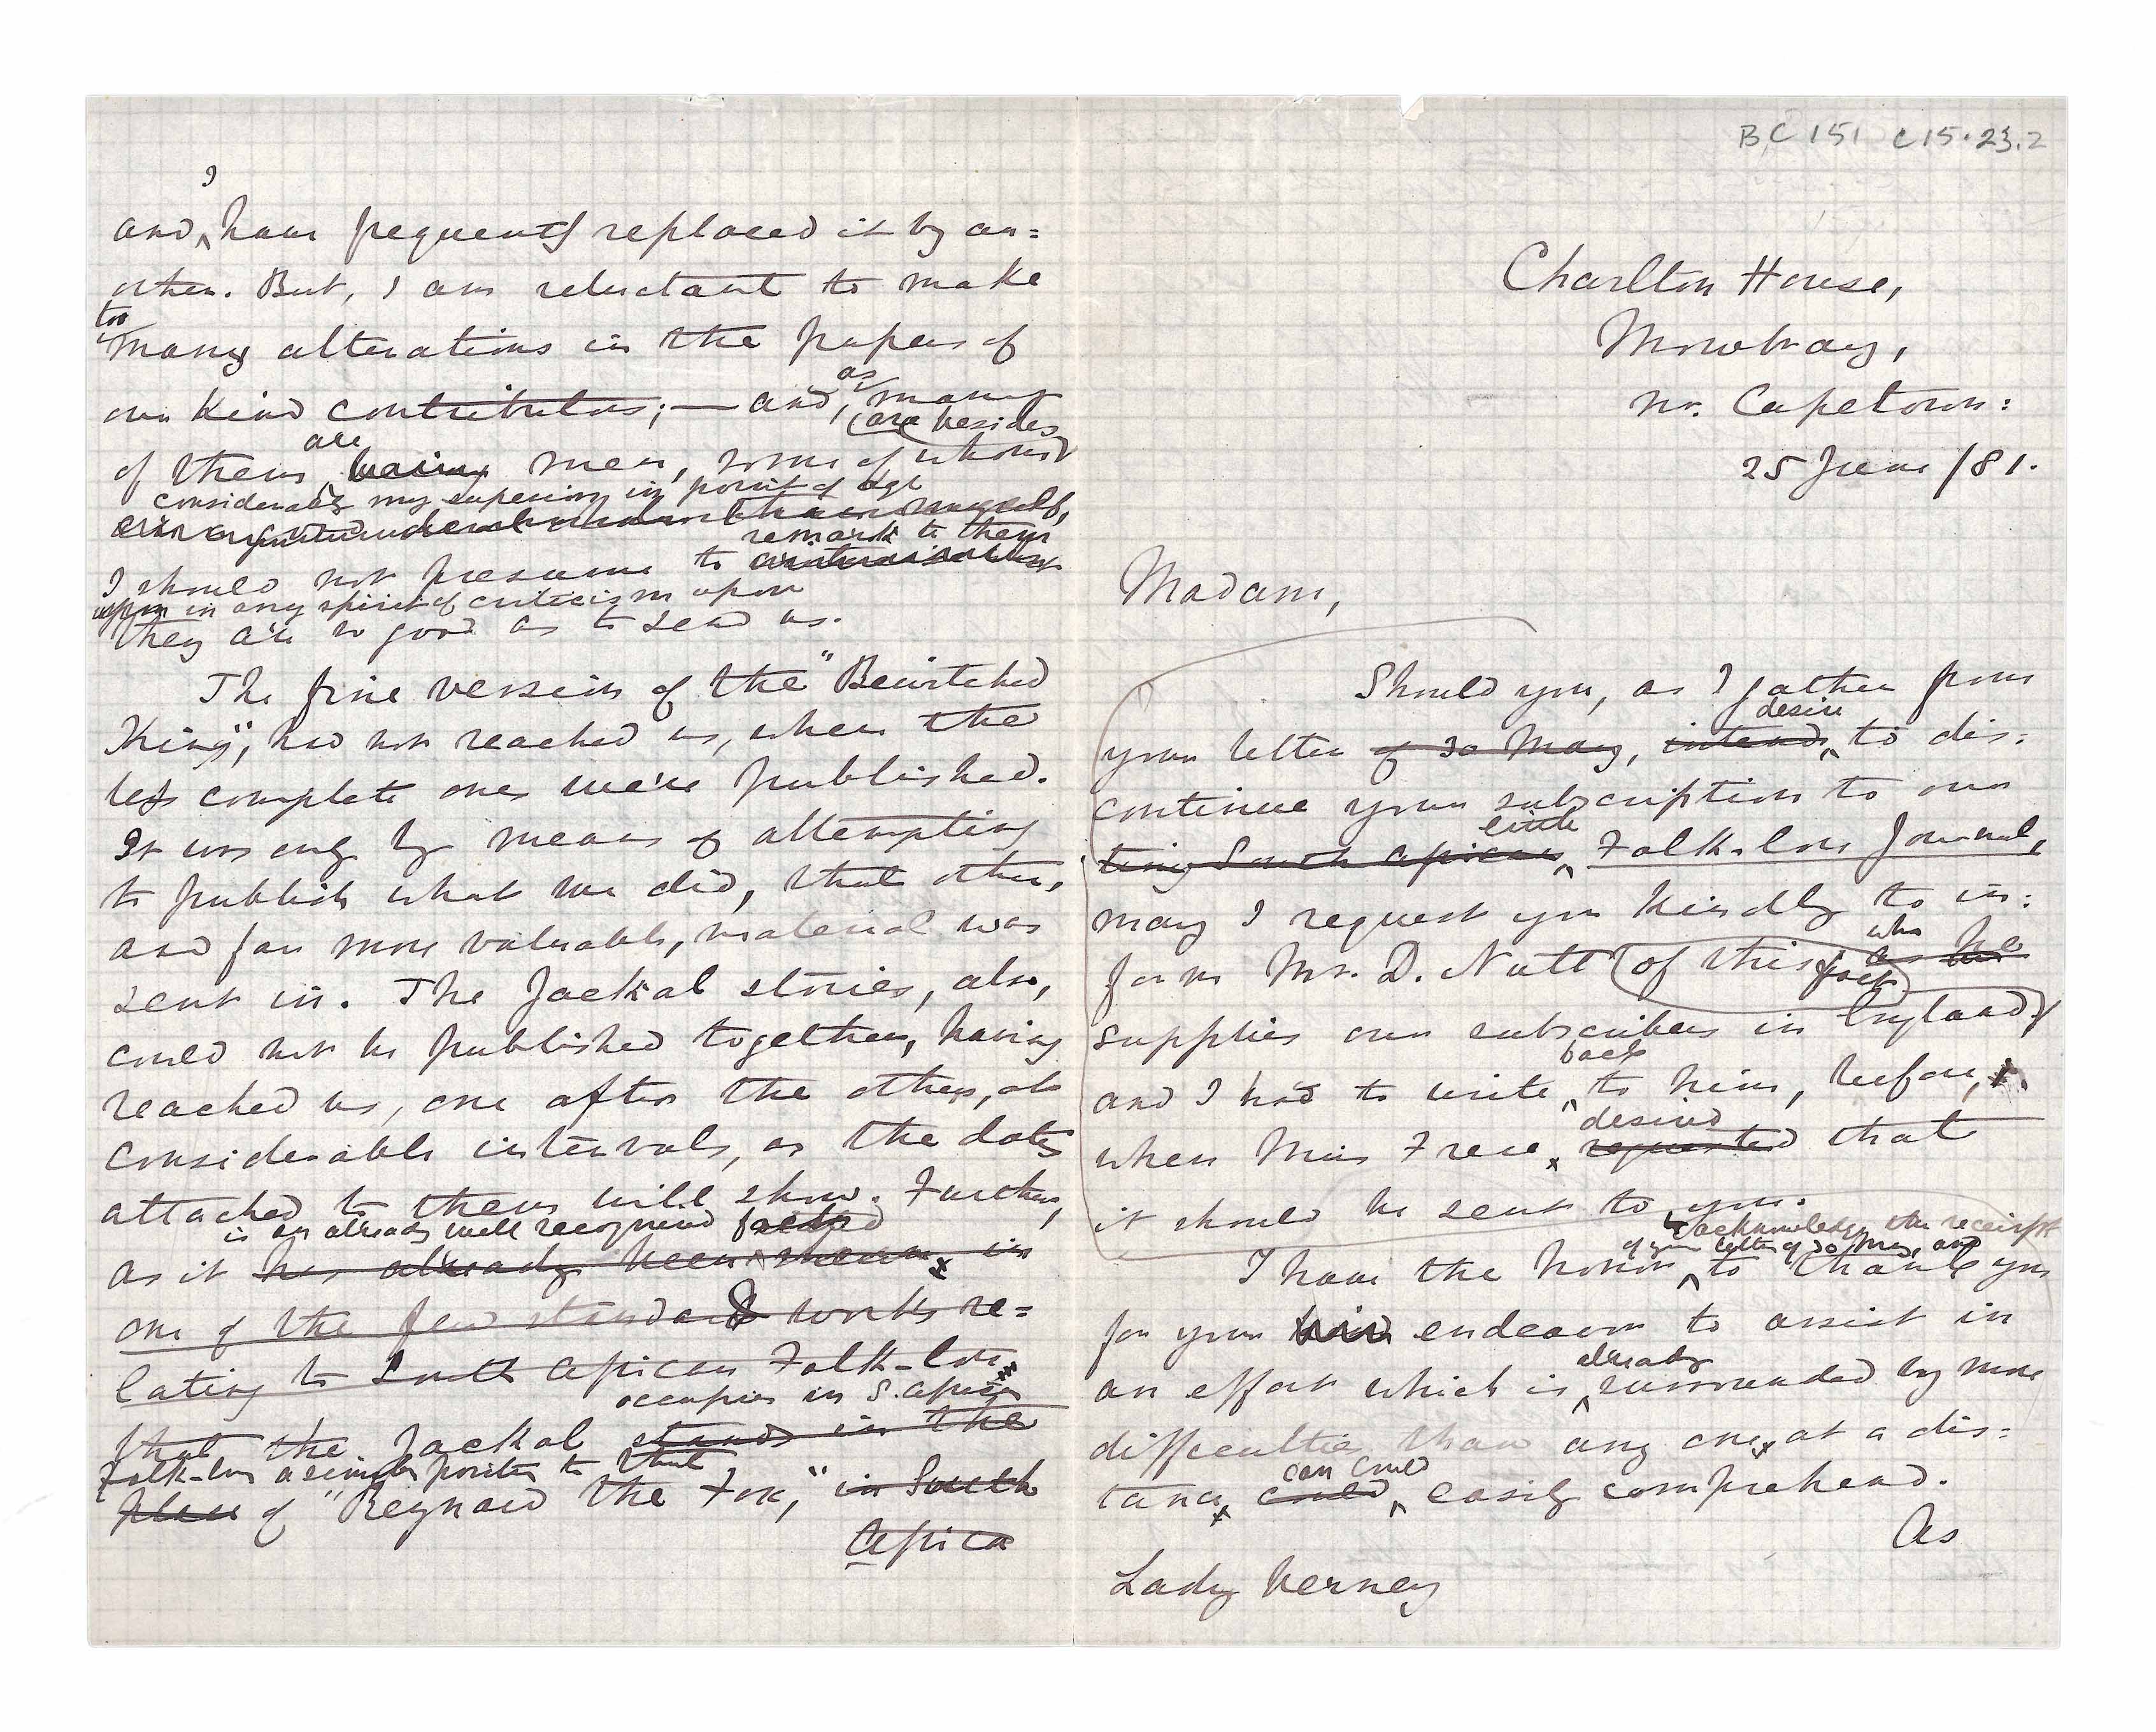 BC 151 C15.23.2
Charlton House,
Mowbray,
nr. Capetown:
25 June /81.
Madam,
Should you, as I gather from
desire
your letter of 30 May, intend, to dis:
continue your subscription to our
little
ting South African Folk-lore Journal,
may I request you kindly to in:
who
form Mr. D. Nutt (of this fact) as he
supplies our subscribers in England,
back
and I had to write to him, before,
desired
when Miss Frere requested that
it should be sent to you.
acknowledge the receipt
of your letter of 30 May, and
I have the honour to thank you
for your kind endeavour to assist in
already
an effort which is surrounded by more
difficulties than any one, at a dis:
can could
tance, could, easily comprehend.
As
Lady Verney
I
and have frequently replaced it by an=
other. But, I am reluctant to make
too
many alterations in the papers of
as
our kind contributors; — and, many
(are besides
are
of them being men, some of whom
considerably my superiors in point of age
myself,
remark to them
I should not presume to
upon in any spirit of criticism upon
they are so good as to send us.
The fine version of the "Bewitched
King", had not reached us, when the
less complete ones were published.
It was only by means of attempting
to publish what we did, that other,
and far more valuable, material was
sent in. The Jackal stories, also,
could not be published together, having
reached us, one after the other, at
considerable intervals, as the dates
attached to them will show. Further,
is an already well recognised fact
as it has already been shown, in
one of the few standard works re=
lating to South African Folk-lore,
occupies in S. Africa
that the Jackal stands in the
Folk-lore a similar position to that
place of "Reynard the Fox," in South
Africa